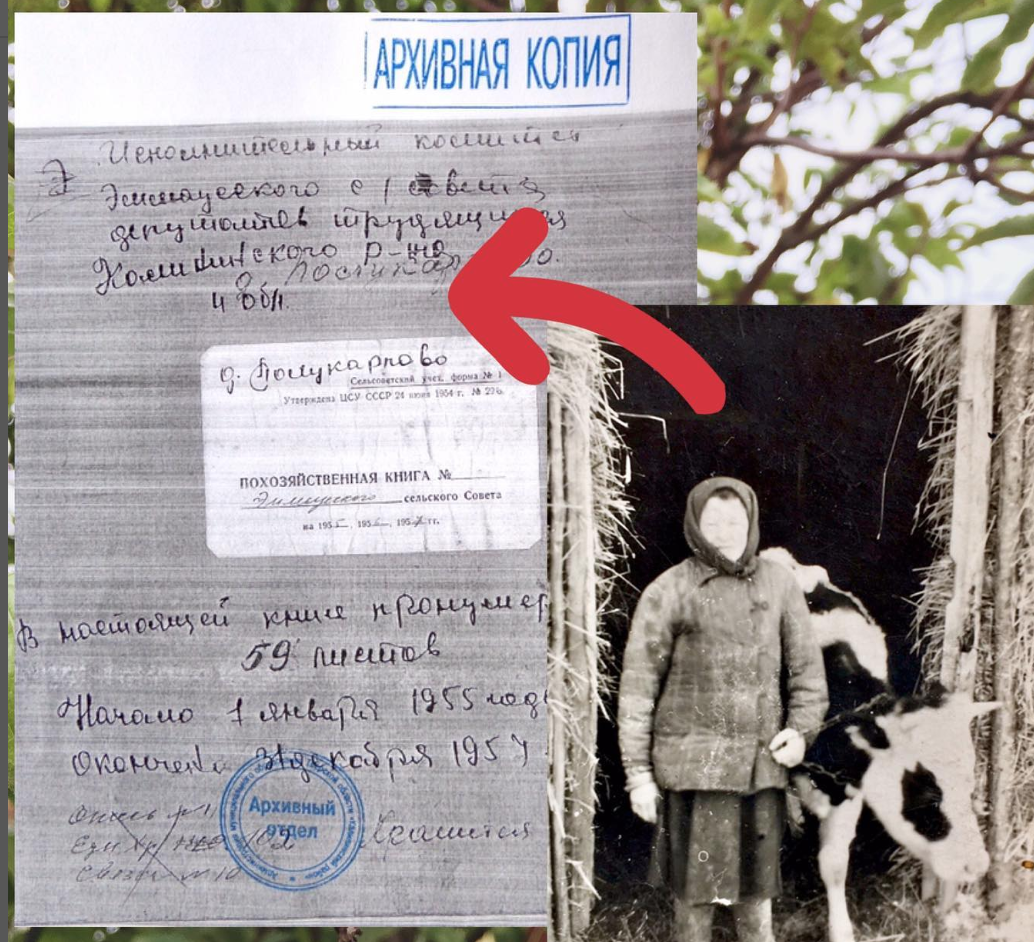 АРХИВНАЯ КОПИЯ
Исполнительный комитет
Эммаусского с/совета
депутатов трудящихся
Калининского р-на
д. Поликарпово.
и обл.
д. Поликарпово
Сельсоветский учет. форма № 1
Утверждена ЦСУ СССР 24 июня 1954 г. № 226.
ПОХОЗЯЙСТВЕННАЯ КНИГА №
Эммаусского сельского Совета
на 1955, 1956, 1957 гг.
В настоящей книге пронумер
59 листов
Начато 1 января 1955 года
Окончен 31 декабря 1957
Опись №1
Архивный
отдел
Ед. хр. 102
Хранится
Связка №10